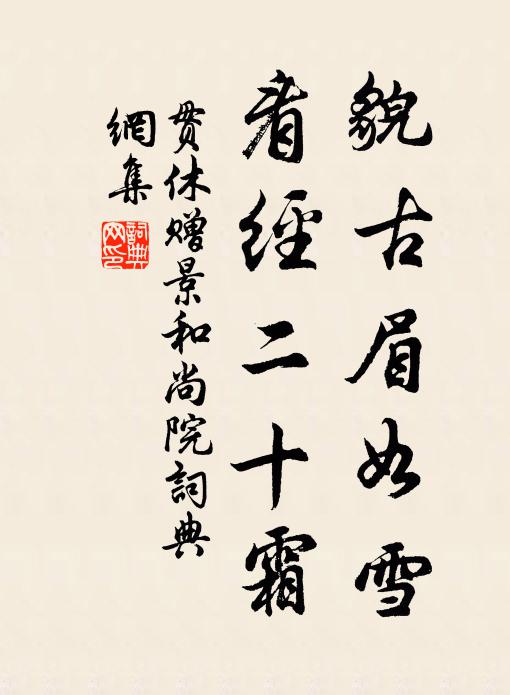 貌古眉如雪
看經二十霜
貫休贈景和尚院詞典
網集
詞典
网印